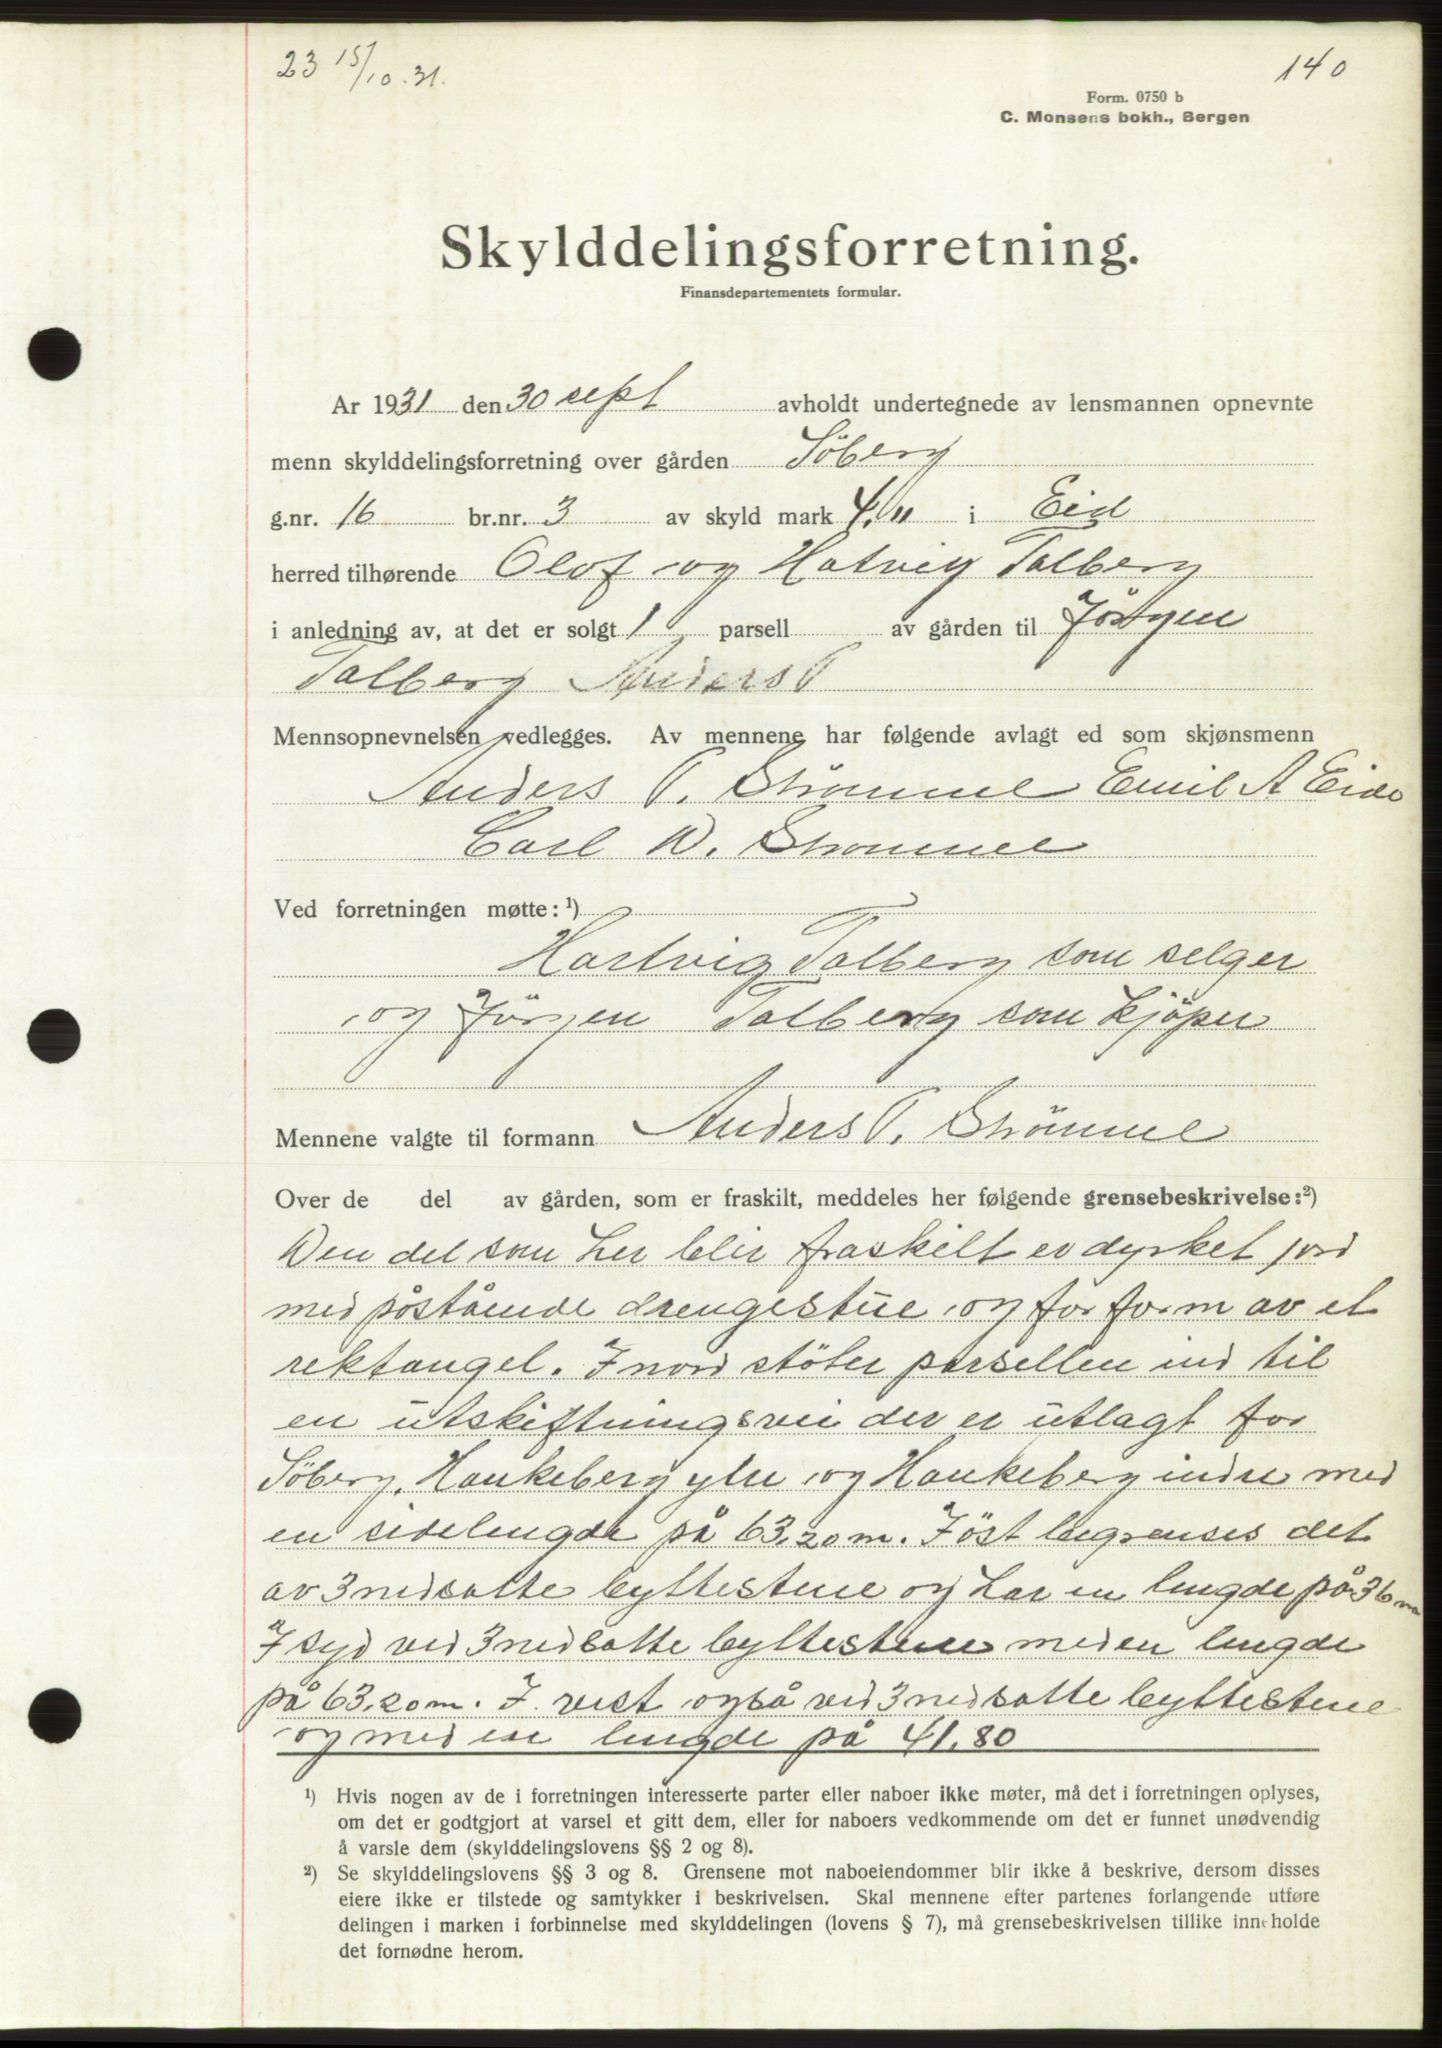 23 15/10.31.
140
Form. 0750 b
C. Monsens bokh., Bergen
Skylddelingsforretning.
Finansdepartementets formular.
Ar 1931 den 30 sept avholdt undertegnede av lensmannen opnevnte
menn skylddelingsforretning over gården Söberg
g.nr. 16 br.nr. 3 av skyld mark 4," i Eid
herred tilhørende Olof og Hatvig Talberg
i anledning av, at det er solgt 1 parsell av gården til Jörgen
Talberg Anders P
Mennsopnevnelsen vedlegges. Av mennene har følgende avlagt ed som skjønsmenn
Anders P. Strömmel Emil A Eide
Carl W. Strommel
Ved forretningen møtte: ¹)
Hartvig Talberg som selger
og Jörgen Talberg som kjöper
Mennene valgte til formann Anders P. Strömmel
Over de del av gården, som er fraskilt, meddeles her følgende grensebeskrivelse: ²)
Den del som her blir fraskilt er dyrket jord
med påstående drengestue og får form av et
rektangel. I nord stöter parsellen ind til
en utskiftningsvei der er utlagt for
Söberg, Haukeberg ytre og Haukeberg indre med
en sidelengde på 63,20 m. I öst begrenses det
av 3 nedsatte byttestene og har en lengde på 36 m
I syd ved 3 nedsatte byttestene med en lengde
på 63,20 m. I vest også ved 3 nedsatte byttestene
og med en lengde på 41,80
¹) Hvis nogen av de i forretningen interesserte parter eller naboer ikke møter, må det i forretningen oplyses,
om det er godtgjort at varsel et gitt dem, eller for naboers vedkommende om det er funnet unødvendig
å varsle dem (skylddelingslovens §§ 2 og 8).
²) Se skylddelingslovens §§ 3 og 8. Grensene mot naboeiendommer blir ikke å beskrive, dersom disses
eiere ikke er tilstede og samtykker i beskrivelsen. Skal mennene efter partenes forlangende utføre
delingen i marken i forbinnelse med skylddelingen (lovens § 7), må grensebeskrivelsen tillike inneholde
det fornødne herom.